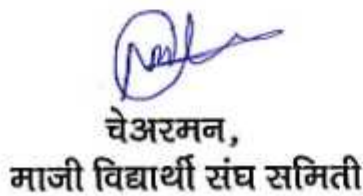 चेअरमन,
माजी विद्यार्थी संघ समिती